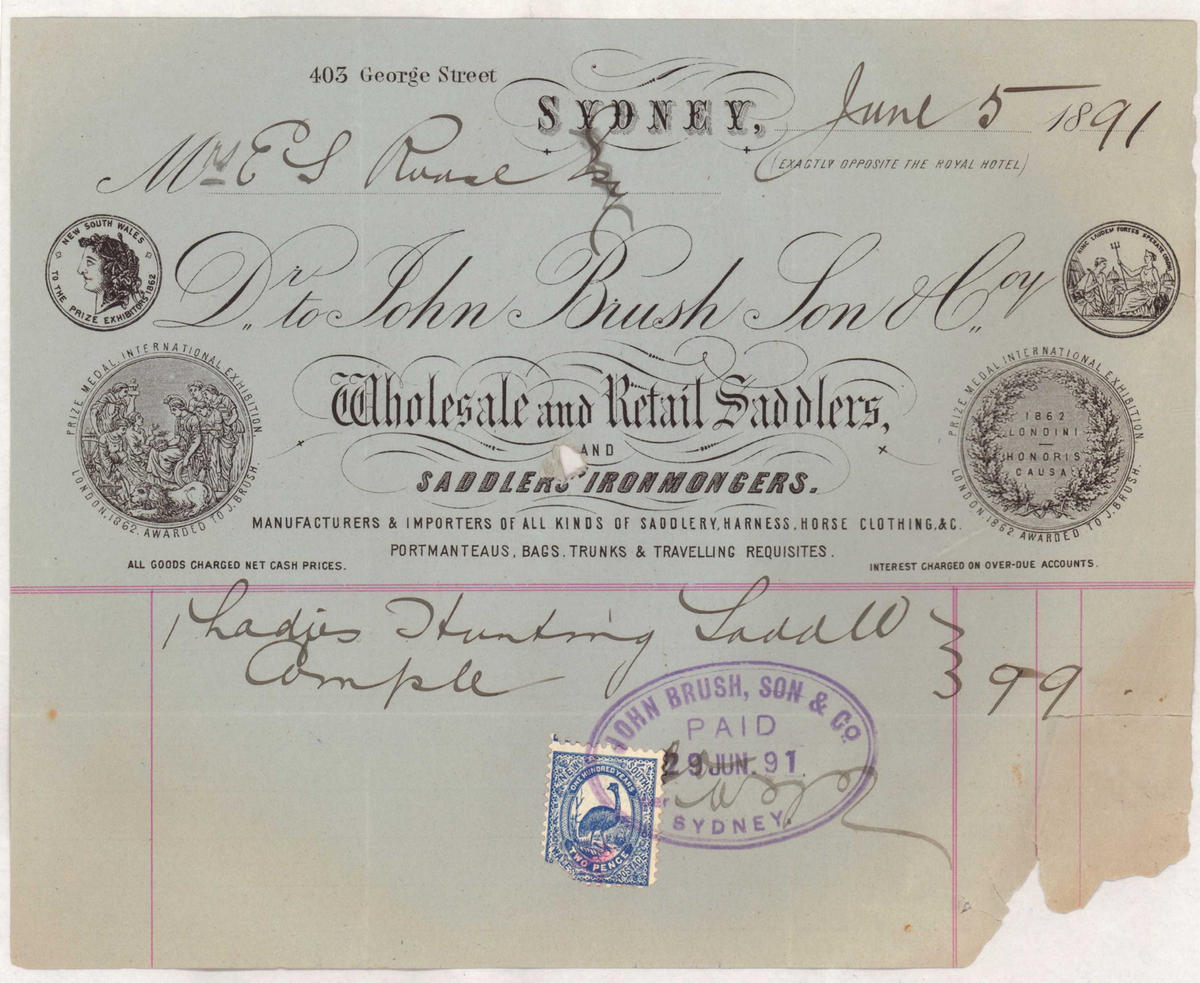 403 George Street
SYDNEY, June 5 1891
(EXACTLY OPPOSITE THE ROYAL HOTEL)
Mrs E S Rouse
NEW SOUTH WALES
TO THE PRIZE EXHIBITORS 1862
Dr. to John Brush Son & Coy
Wholesale and Retail Saddlers,
AND
SADDLERS' IRONMONGERS.
PRIZE MEDAL. INTERNATIONAL EXHIBITION
LONDON, 1862. AWARDED TO J. BRUSH.
PRIZE MEDAL INTERNATIONAL EXHIBITION
1862
LONDINI
HONORIS
CAUSA
LONDON, 1862 AWARDED TO J. BRUSH.
MANUFACTURERS & IMPORTERS OF ALL KINDS OF SADDLERY, HARNESS, HORSE CLOTHING, &C.
PORTMANTEAUS, BAGS, TRUNKS & TRAVELLING REQUISITES.
ALL GOODS CHARGED NET CASH PRICES.
INTEREST CHARGED ON OVER-DUE ACCOUNTS.
1 Ladies Hunting Saddle
Comple
} 9 9
JOHN BRUSH, SON & CO.
PAID
29 JUN. 91
per
SYDNEY.
ONE HUNDRED YEARS
NEW SOUTH
WALES POSTAGE
TWO PENCE